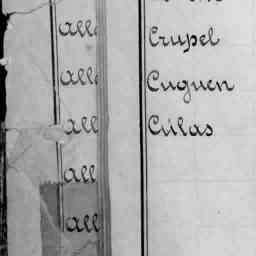 alle
Crupel
all
Cuguen
all
Culas
all
all